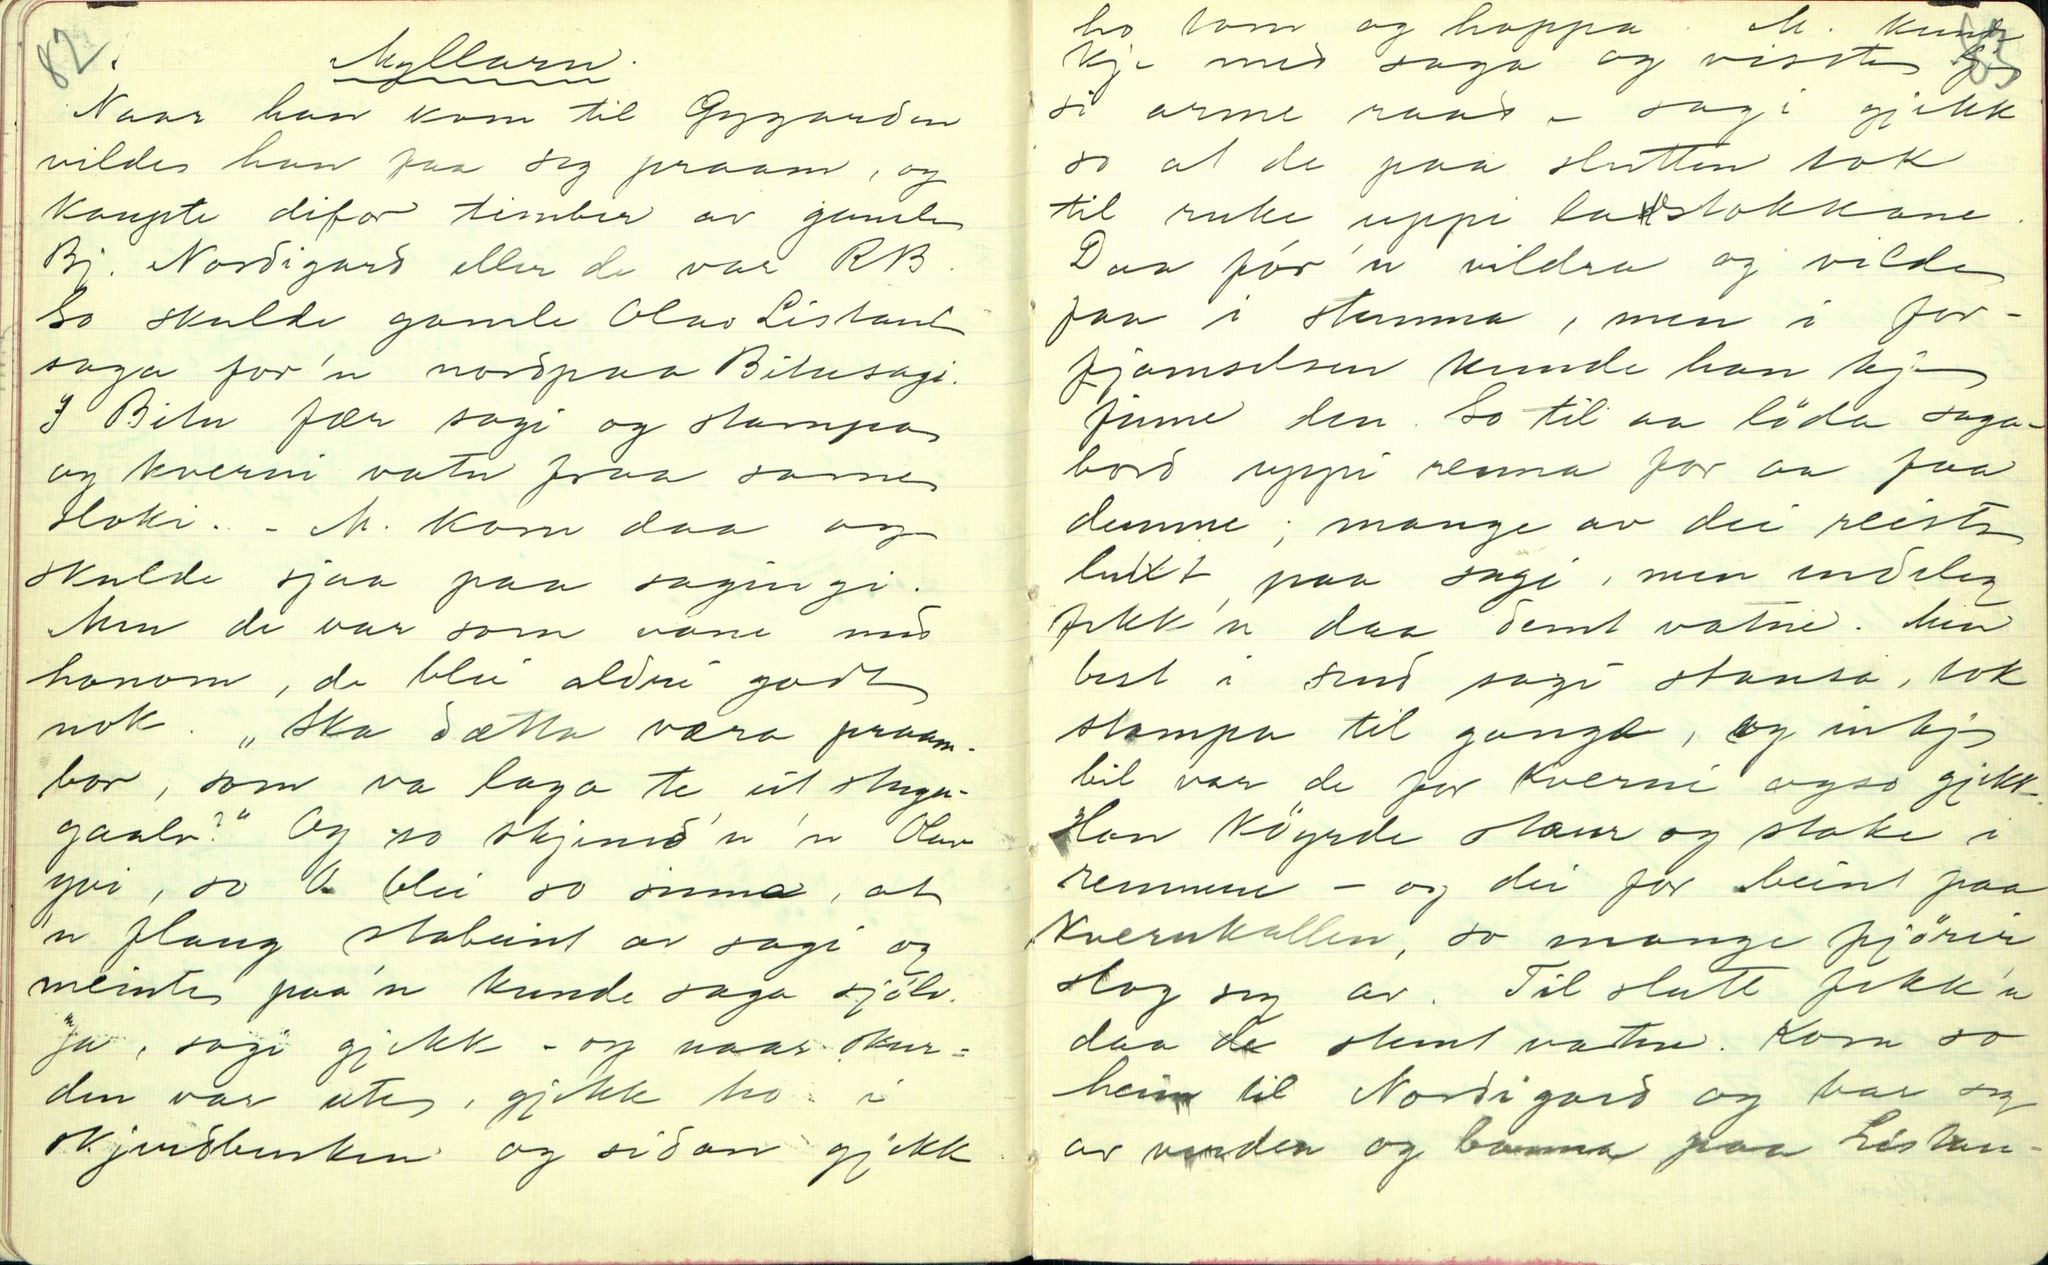 82.
Myllarn.
Naar han kom til Gygarden
vilde han faa seg praam, og
kaupte difor timber av gamle
Bj. Nordigard eller de var RB.
So skulde gamle Olav Listaul
saga for'n nordpaa Bitusagi.
I Bitu fær sagi og stampa
og kverni vatn fraa same
stoki. - M. kom daa og
skulde sjaa paa sagingi.
Men de var som vane med
honom, de blei aldrei godt
nok. "Ska dætta væra praam-
bor, som va laga te eit stugu-
gaalv?" Og so skjend'n 'n Olav
yvi, so O blei so sinna, at
'n flaug stabeint av sagi og
meinte paa'n kunde saga sjölv.
Ja, sagi gjekk - og naar skur-
den var ute, gjekk ho i
skjerdbenken og sidan gjekk
83
ho tom og hoppa. M. kunde
kje med saga og visste kje
si arme raad - sagi gjekk
so at de paa slutten tok
til ruke uppi lastokkane.
Daa fór'n vildra og vilde
faa i stemma, men i for-
fjamselsen kunde han kje
finne den. So til aa löda saga-
bord uppi renna for aa faa
demme; mange av dei reiste
luxt paa sagi, men endeleg
fekk'n daa demt vatne. Men
best i senn sagi stansa, tok
stampa til gange, og inkje
bil var de for kverni ogso gjekk.
Han köyrde staur og stake i
rennune - og dei for beint paa
kvernkallen, so mange fjörir
slog seg av. Til slutt fekk'n
daa de stemt vatne. Kom so
heim til Nordigard og bar seg
av vonden og banna paa Listau-